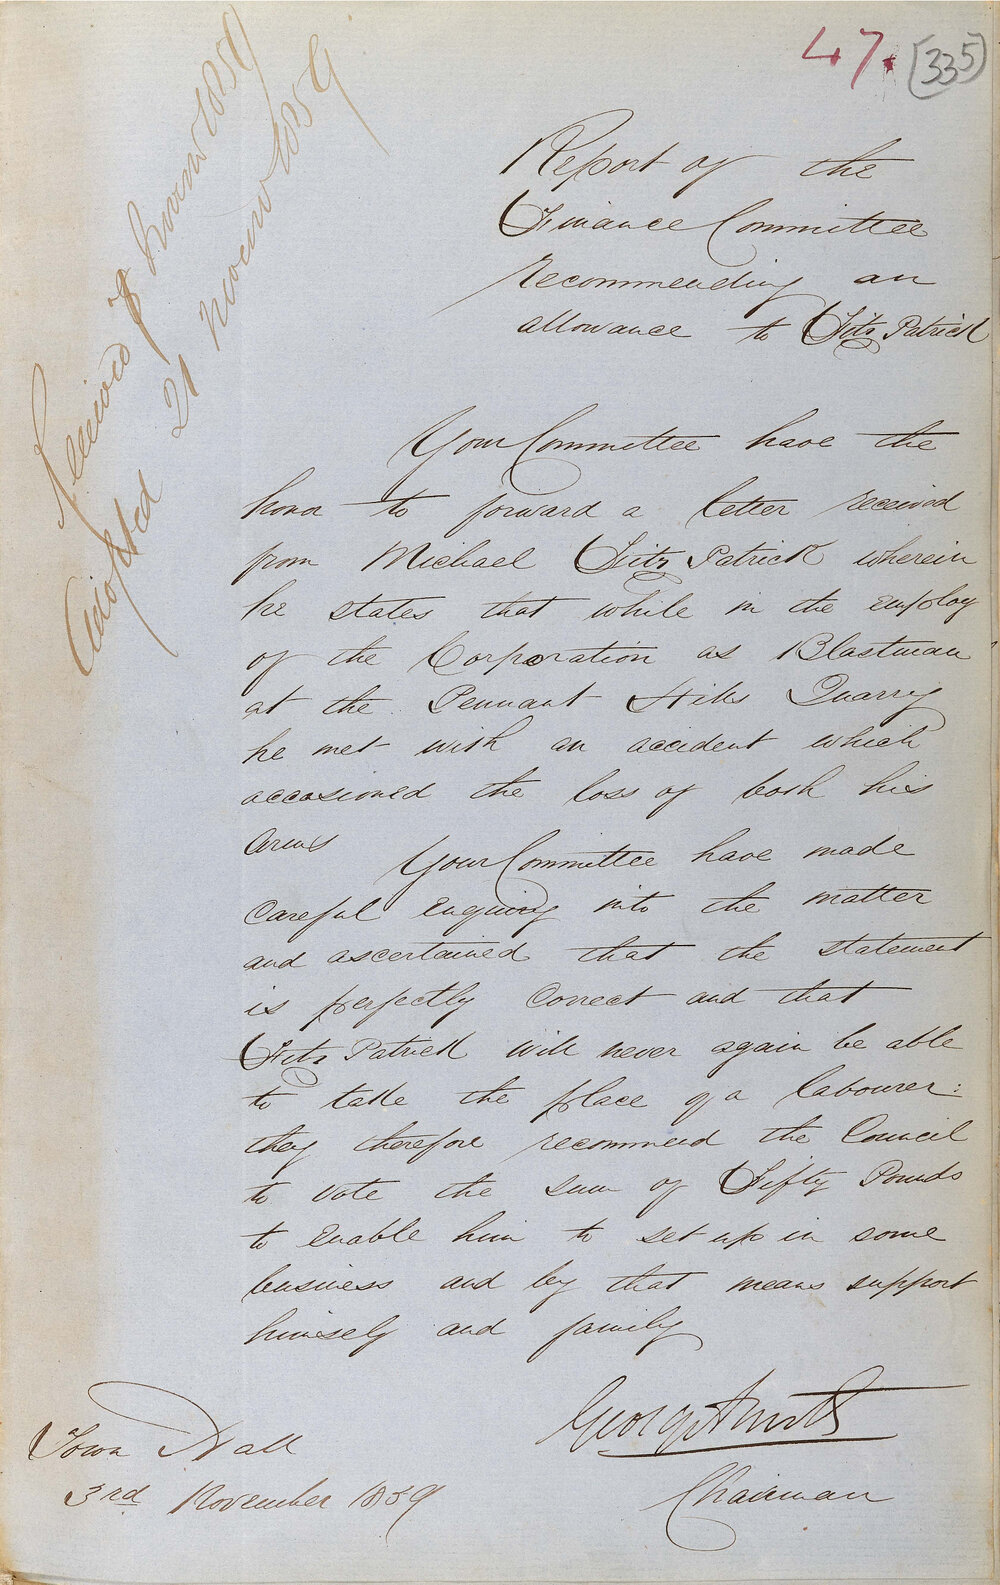 47. (335)
Report of the
Finance Committee
recommending an
allowance to Fitz Patrick
Received 7 November 1859
Adopted 21 November 1859
Your Committee have the
honor to forward a letter received
from Michael Fitz Patrick wherein
he states that while in the employ
of the Corporation as Blastman
at the Pennant Hills Quarry
he met with an accident which
occasioned the loss of both his
Arms
Your Committee have made
careful enquiry into the matter
and ascertained that the statement
is perfectly correct and that
Fitz Patrick will never again be able
to take the place of a labourer:
they therefore recommend the Council
to vote the sum of Fifty Pounds
to enable him to set up in some
business and by that means support
himself and family
George Smith
Chairman
Town Hall
3rd November 1859